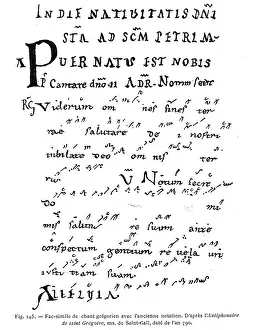 IN DIE NATIVITATIS DNI
STA AD SCM PETRUM
A PUER NATUS EST NOBIS
Ps Cantate dno ADR. Nomm
RG Viderunt om nes fines ter
rae salutare de i nostri
iubilate deo om nis ter
ra V Notum fecit
do mi
mi salu re suum ante
conspectum gentium re vela uit
iusti tiam suam
ALLELUIA
Fig. 145. — Fac-similé de chant grégorien avec l'ancienne notation. D'après l'Antiphonaire
de saint Grégoire, ms. de Saint-Gall, daté de l'an 790.